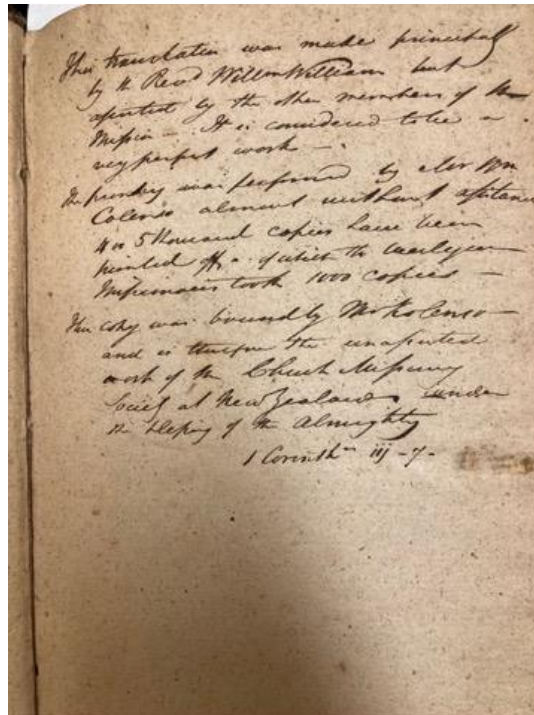 This translation was made principall
by the Revd William Williams but
assisted by the other members of the
Mission - It is considered to be a
very perfect work -
The printing was performed by Mr Wm
Colenso almost without assistance
4 or 5 thousand copies have been
printed off - of which the Wesleyan
Missionaries took 1000 copies -
This copy was bound by Mr Kolenso -
and is therefore the unassisted
work of the Church Missionary
Society at New Zealand under
the blessing of the Almighty
1 Corinthn iij - 7 -